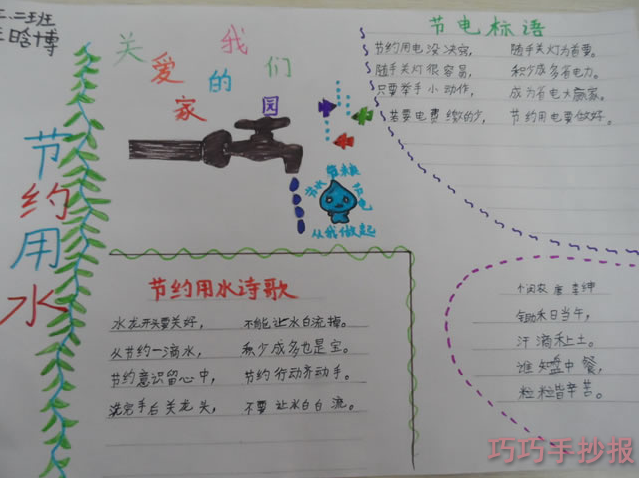 二班
晗博
节约用水
关爱我们的家园
节水
节电
从我做起
节电标语
节约用电没决窍, 随手关灯为首要。
随手关灯很容易, 积少成多省电力。
只要举手小动作, 成为省电大赢家。
若要电费缴的少, 节约用电要做好。
节约用水诗歌
水龙头要关好, 不能让水白流掉。
从节约一滴水, 积少成多也是宝。
节约意识留心中, 节约行动齐动手。
洗完手后关龙头, 不要让水白白流。
悯农 唐 李绅
锄禾日当午,
汗滴禾下土。
谁知盘中餐,
粒粒皆辛苦。
巧巧手抄报